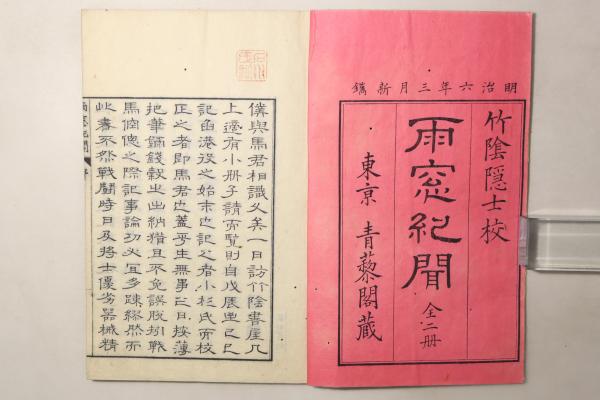 明治六年三月新鐫
竹陰隱士校
雨窓紀聞 全二冊
東京 青藜閣藏
僕與馬君相識久矣一日訪竹陰書屋几
上適有小冊子請而覧則自戊辰至己巳
記函港役之始末也記之者小杉氏而校
正之者即馬君也蓋平生無事之日按薄
把筆錙錢穀之出納猶且不免誤脱矧戰
馬倥偬之際記事論功必宜多疎繆然而
此書不然戰鬪時日及將士優劣器械精